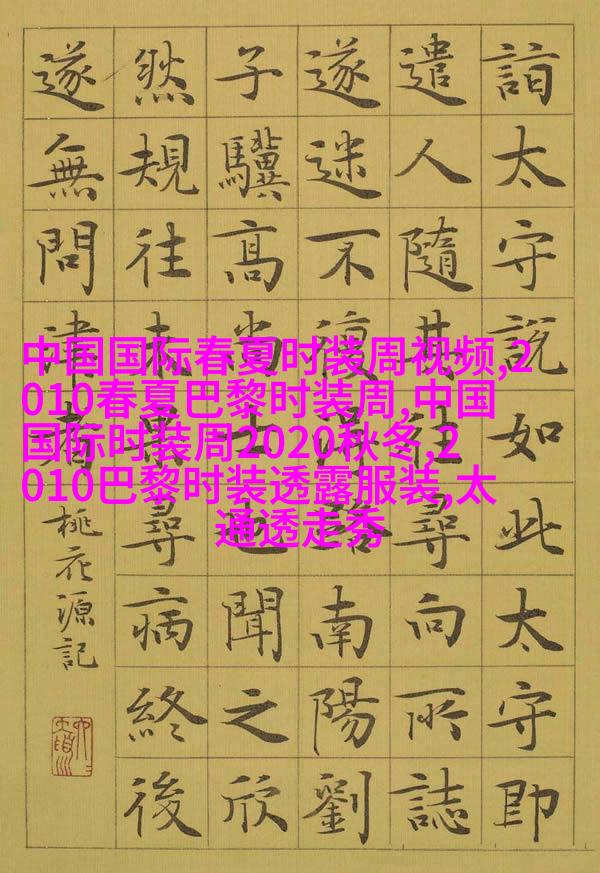 詣太守說如此太守即
遣人隨其往尋向所誌
遂迷不復得路南陽劉
子驥高尚士也聞之欣
然規往未果尋病終後
遂無問津者
桃花源記
中国国际春夏时装周视频,2
010春夏巴黎时装周,中国
国际时装周2020秋冬,2
010巴黎时装透露服装,太
通透走秀